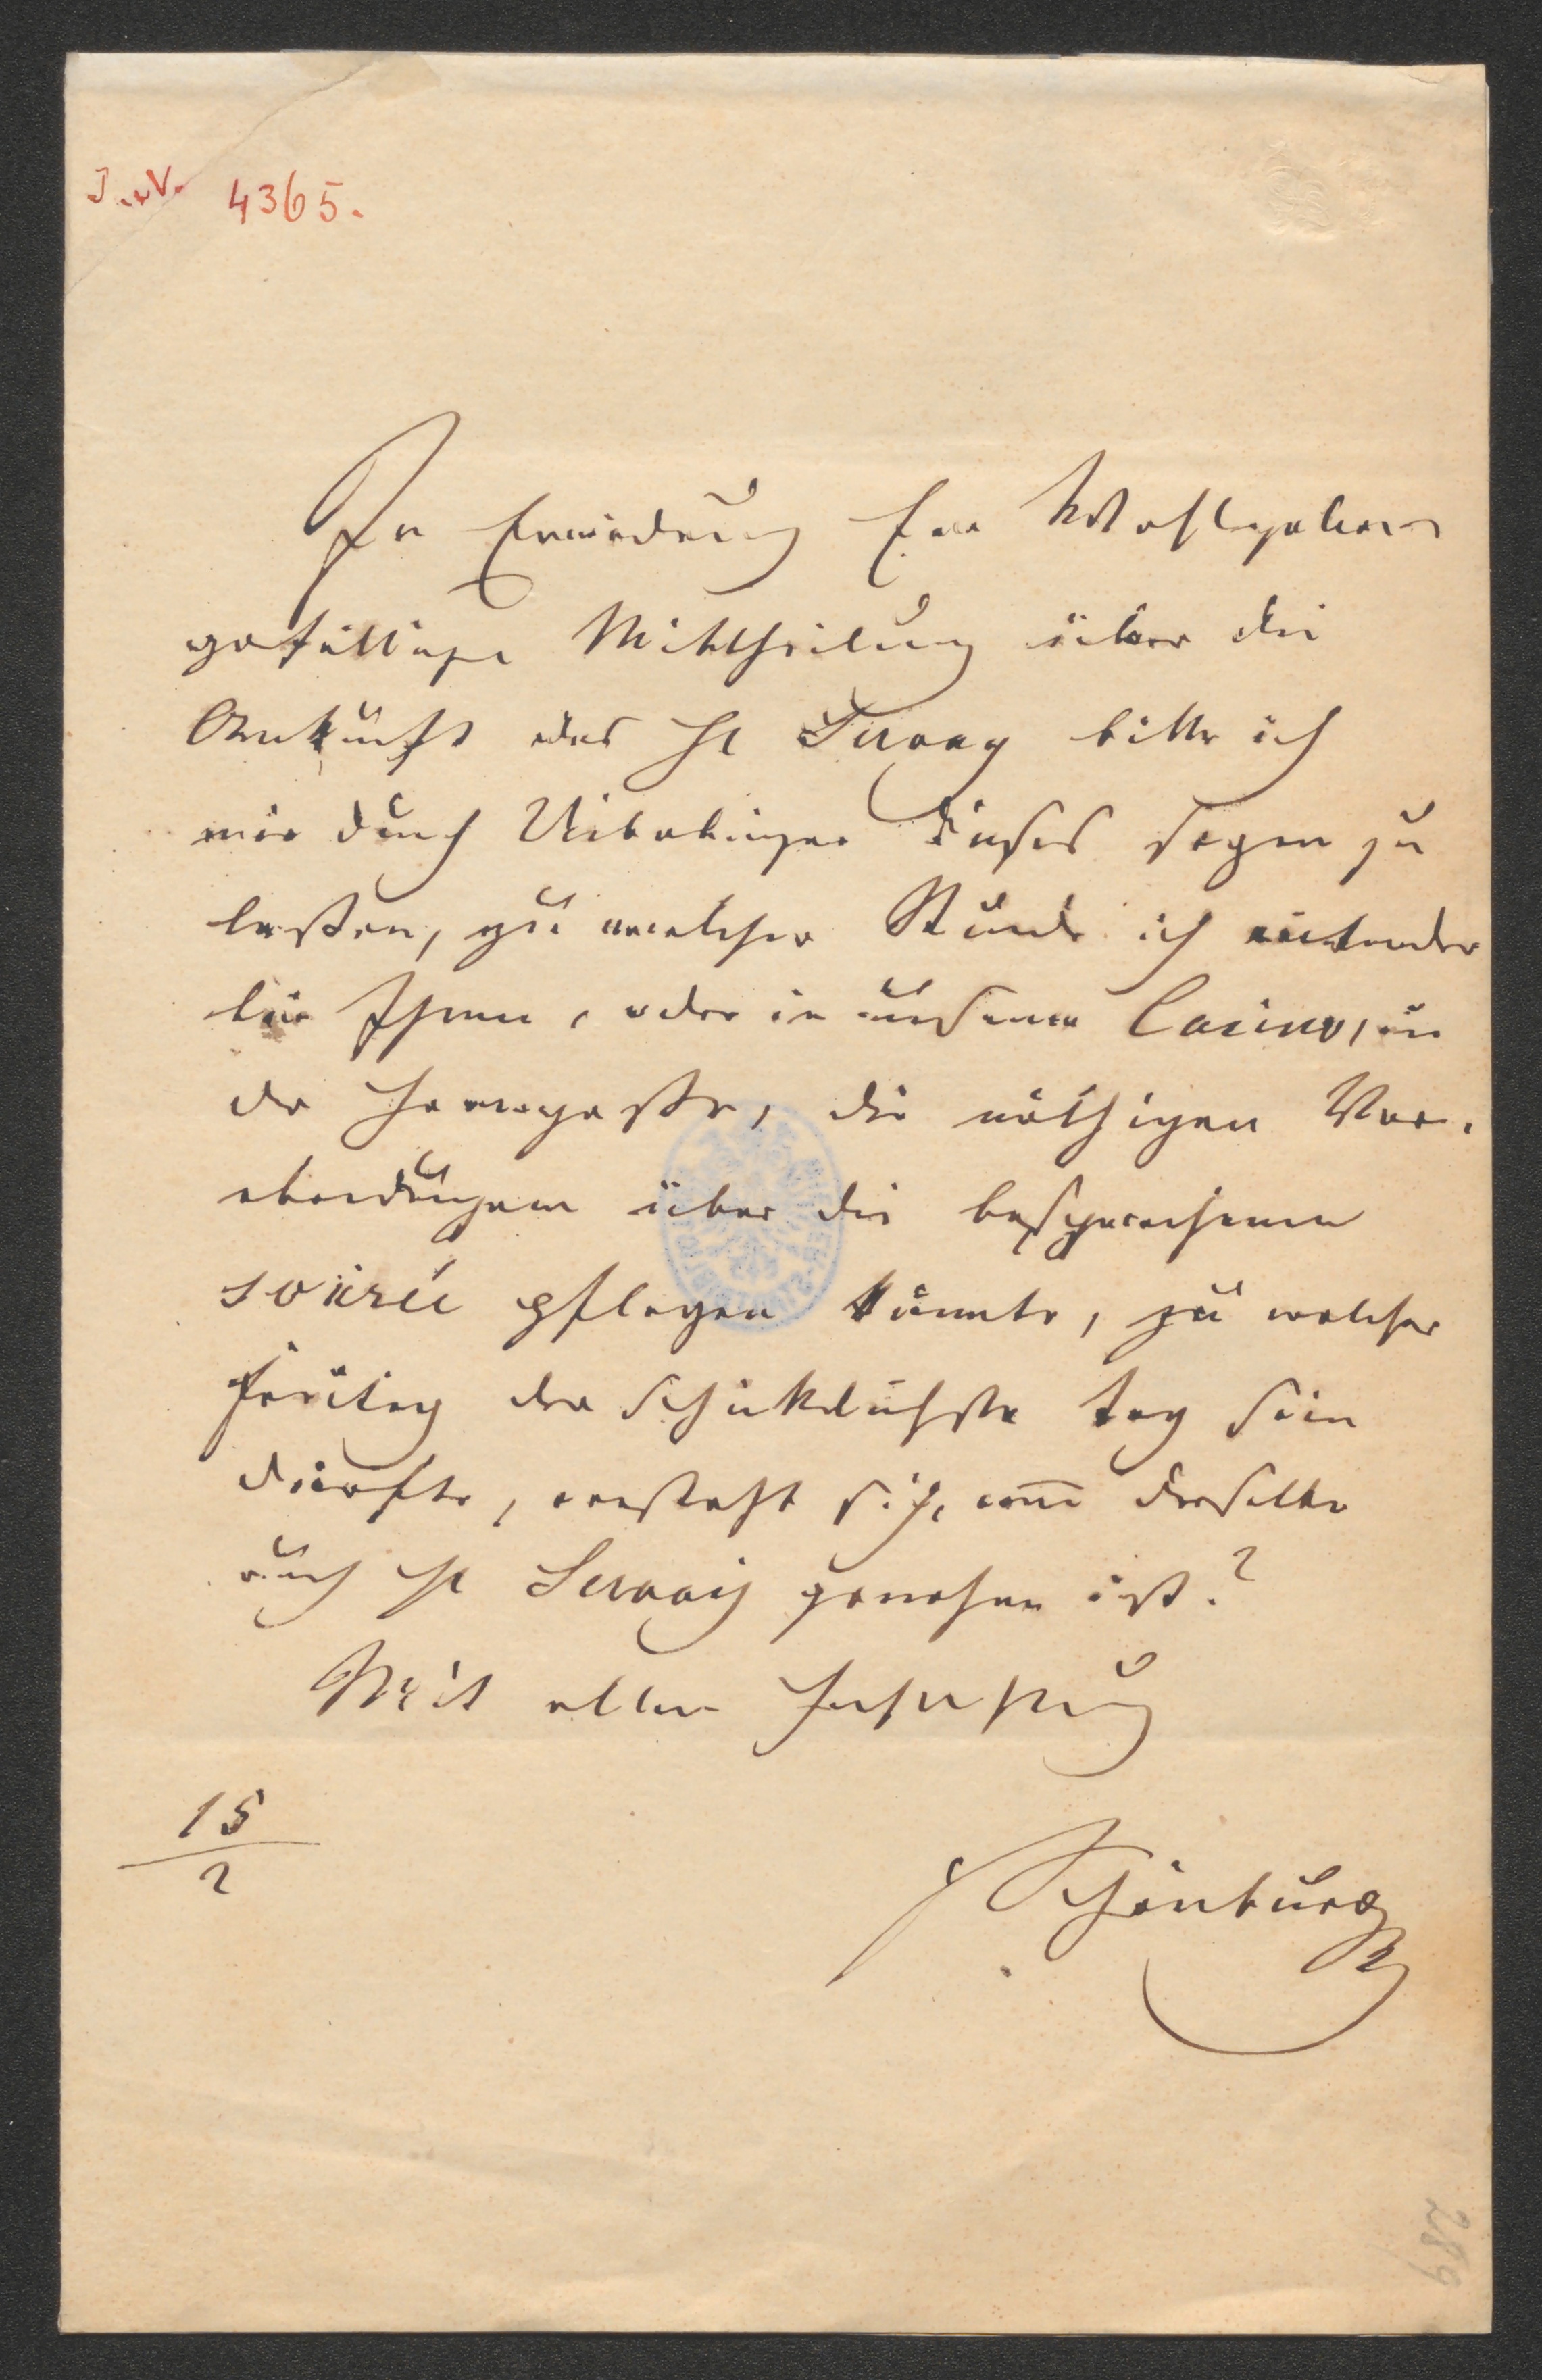 I.N. 4365.
In Erwiedrung Euer Wohlgeboren
gefälligen Mittheilung über die
Ankunft des H Servay bitte ich
mir durch Uiberbringer dieses sagen zu
laßen, zu welcher Stunde ich entweder
bei Ihnen, oder in unserem Casino, in
der Herrngaße, die nöthigen Vor-
abredungen über die besprochenen
soirée pflegen könnte, zu welcher
Freitag der schicklichste Tag sein
dürfte, versteht sich, wenn derselbe
auch H Servais genehm ist?
Mit aller Hochachtung
15
2
Schönburg
289